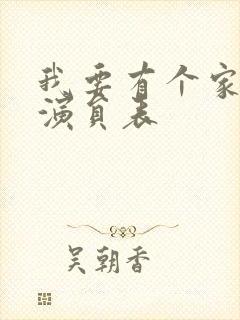 我要有个家
演员表
吴朝香